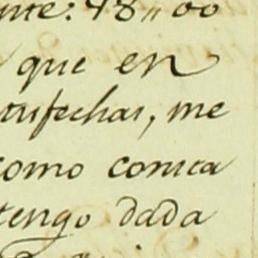 nte: 48,, 00
que en
trifechas, me
como consta
tengo dada